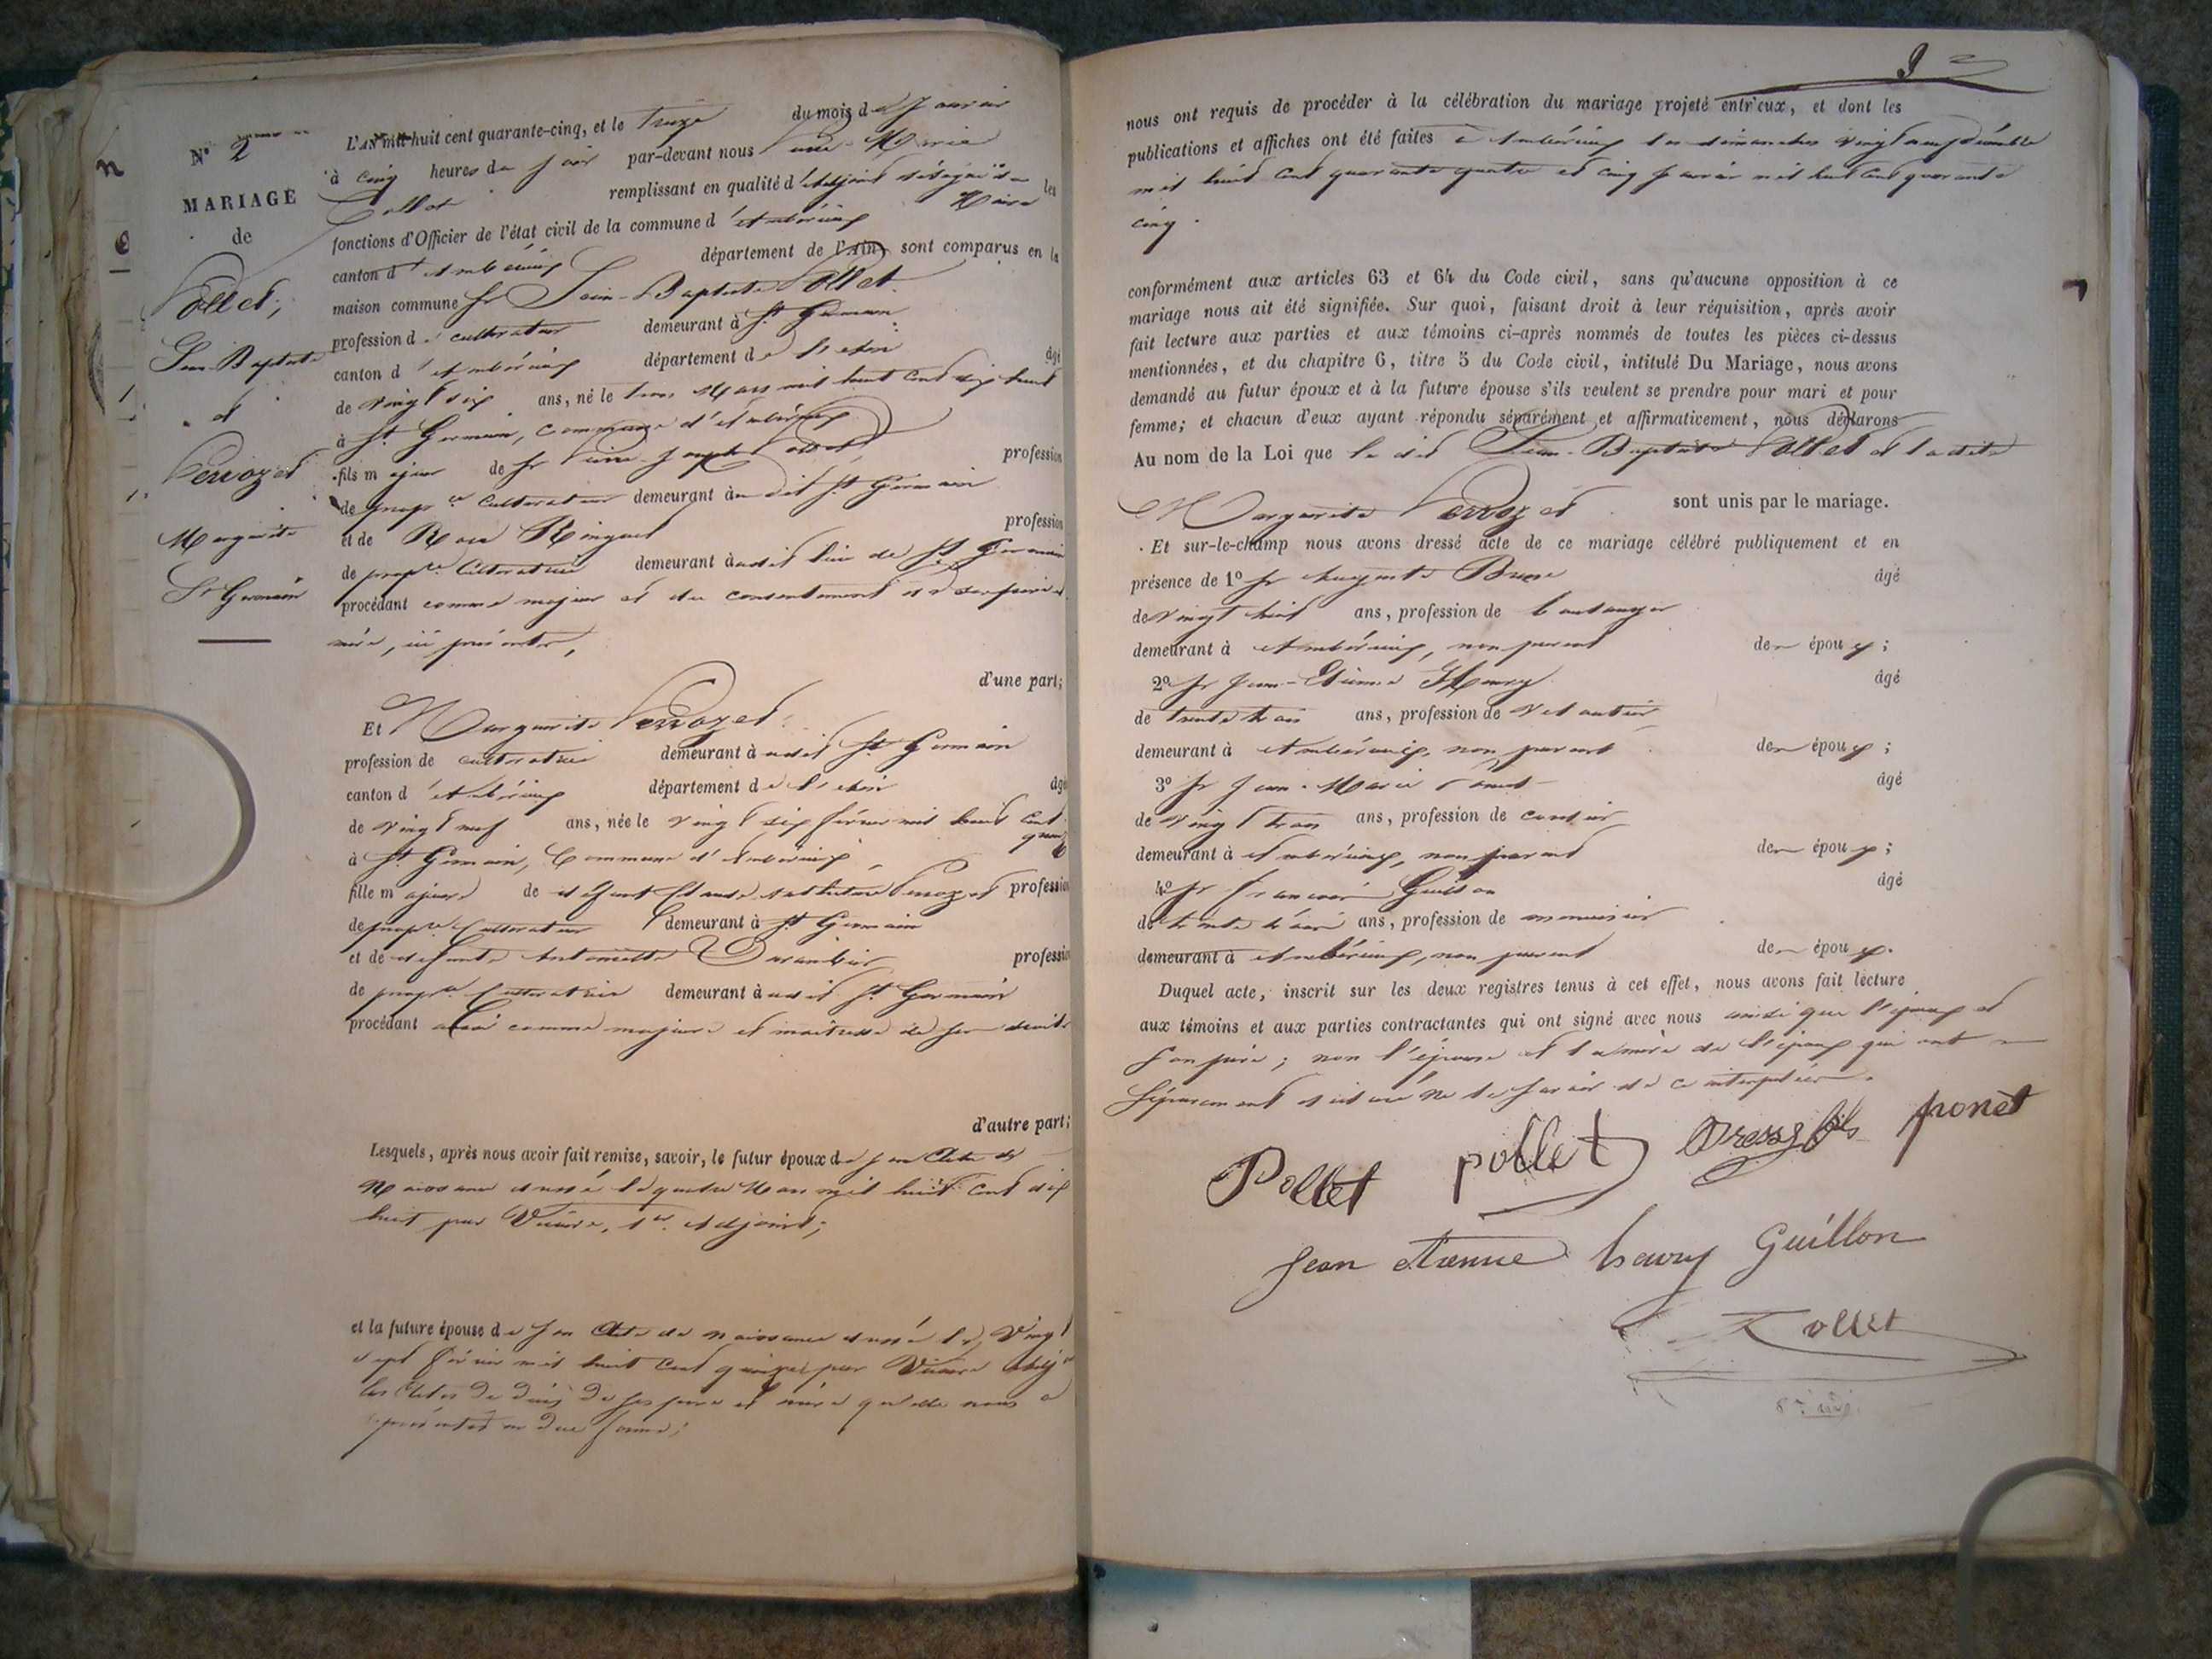 N° 2
MARIAGE
de
Pollet,
Jean Baptiste
et
Perrozet
Marguerite
St Germain
L'AN mil huit cent quarante-cinq, et le treize du mois de Janvier
à cinq heures du soir par-devant nous Pierre-Marie
Collet remplissant en qualité d'Adjoint délégué du Maire les
fonctions d'Officier de l'état civil de la commune d'Ambérieux
canton d'Ambérieux département de l'Ain, sont comparus en la
maison commune Sr Jean-Baptiste Pollet
profession de cultivateur demeurant à St Germain
canton d'Ambérieux département de l'Ain âgé
de vingt six ans, né le trois Mars mil huit cent dix huit
à St Germain, Commune d'Ambérieux
fils majeur de Sr Pierre Joseph Pollet, profession
de propre cultivateur demeurant au dit St Germain
et de Rose profession
de propre Cultivatrice demeurant audit lieu de St Germain
procédant comme majeur et du consentement de ses père et
mère, ici présents,
d'une part;
Et Marguerite Perrozet
profession de cultivatrice demeurant à udit St Germain
canton d'Ambérieux département de l'Ain âgée
de vingt neuf ans, née le vingt six février mil huit cent quinze
à St Germain, Commune d'Ambérieux
fille majeure de défunt Claude Anthelme Perrozet profession
de propre Cultivateur demeurant à St Germain
et de défunte Antoinette profession
de propre Cultivatrice demeurant à udit St Germain
procédant comme majeure et maîtresse de ses droits
d'autre part;
Lesquels, après nous avoir fait remise, savoir, le futur époux de son Acte de
Naissance dressé le quatre Mars mil huit cent dix
huit par 1er Adjoint;
et la future épouse de son Acte de naissance dressé le Vingt
sept février mil huit cent quinze par Adjt
les Actes de décès de ses père et mère qu'elle nous a
présentés en due forme;
9
nous ont requis de procéder à la célébration du mariage projeté entr'eux, et dont les
publications et affiches ont été faites à Ambérieux les dimanches vingt neuf décembre
mil huit cent quarante quatre et cinq Janvier mil huit cent quarante
cinq.
conformément aux articles 63 et 64 du Code civil, sans qu'aucune opposition à ce
mariage nous ait été signifiée. Sur quoi, faisant droit à leur réquisition, après avoir
fait lecture aux parties et aux témoins ci-après nommés de toutes les pièces ci-dessus
mentionnées, et du chapitre 6, titre 5 du Code civil, intitulé Du Mariage, nous avons
demandé au futur époux et à la future épouse s'ils veulent se prendre pour mari et pour
femme; et chacun d'eux ayant répondu séparément et affirmativement, nous déclarons
Au nom de la Loi que le dit Jean-Baptiste Pollet et ladite
Marguerite Perrozet sont unis par le mariage.
Et sur-le-champ nous avons dressé acte de ce mariage célébré publiquement et en
présence de 1° Sr Auguste âgé
de vingt huit ans, profession de boulanger
demeurant à Ambérieux, non parent des époux;
2° Sr Jean-Etienne Henry âgé
de trente trois ans, profession de
demeurant à Ambérieux, non parent des époux;
3° Sr Jean-Marie Ponet âgé
de vingt trois ans, profession de
demeurant à Ambérieux, non parent des époux;
4° Sr François Guillon âgé
de trente trois ans, profession de menuisier
demeurant à Ambérieux, non parent des époux.
Duquel acte, inscrit sur les deux registres tenus à cet effet, nous avons fait lecture
aux témoins et aux parties contractantes qui ont signé avec nous ainsi que l'époux et
son père; non l'épouse et la mère de l'époux qui ont
séparément déclaré ne le savoir de ce interpellées.
Pollet pollet fils ponet
Jean etienne henry Guillon
Collet